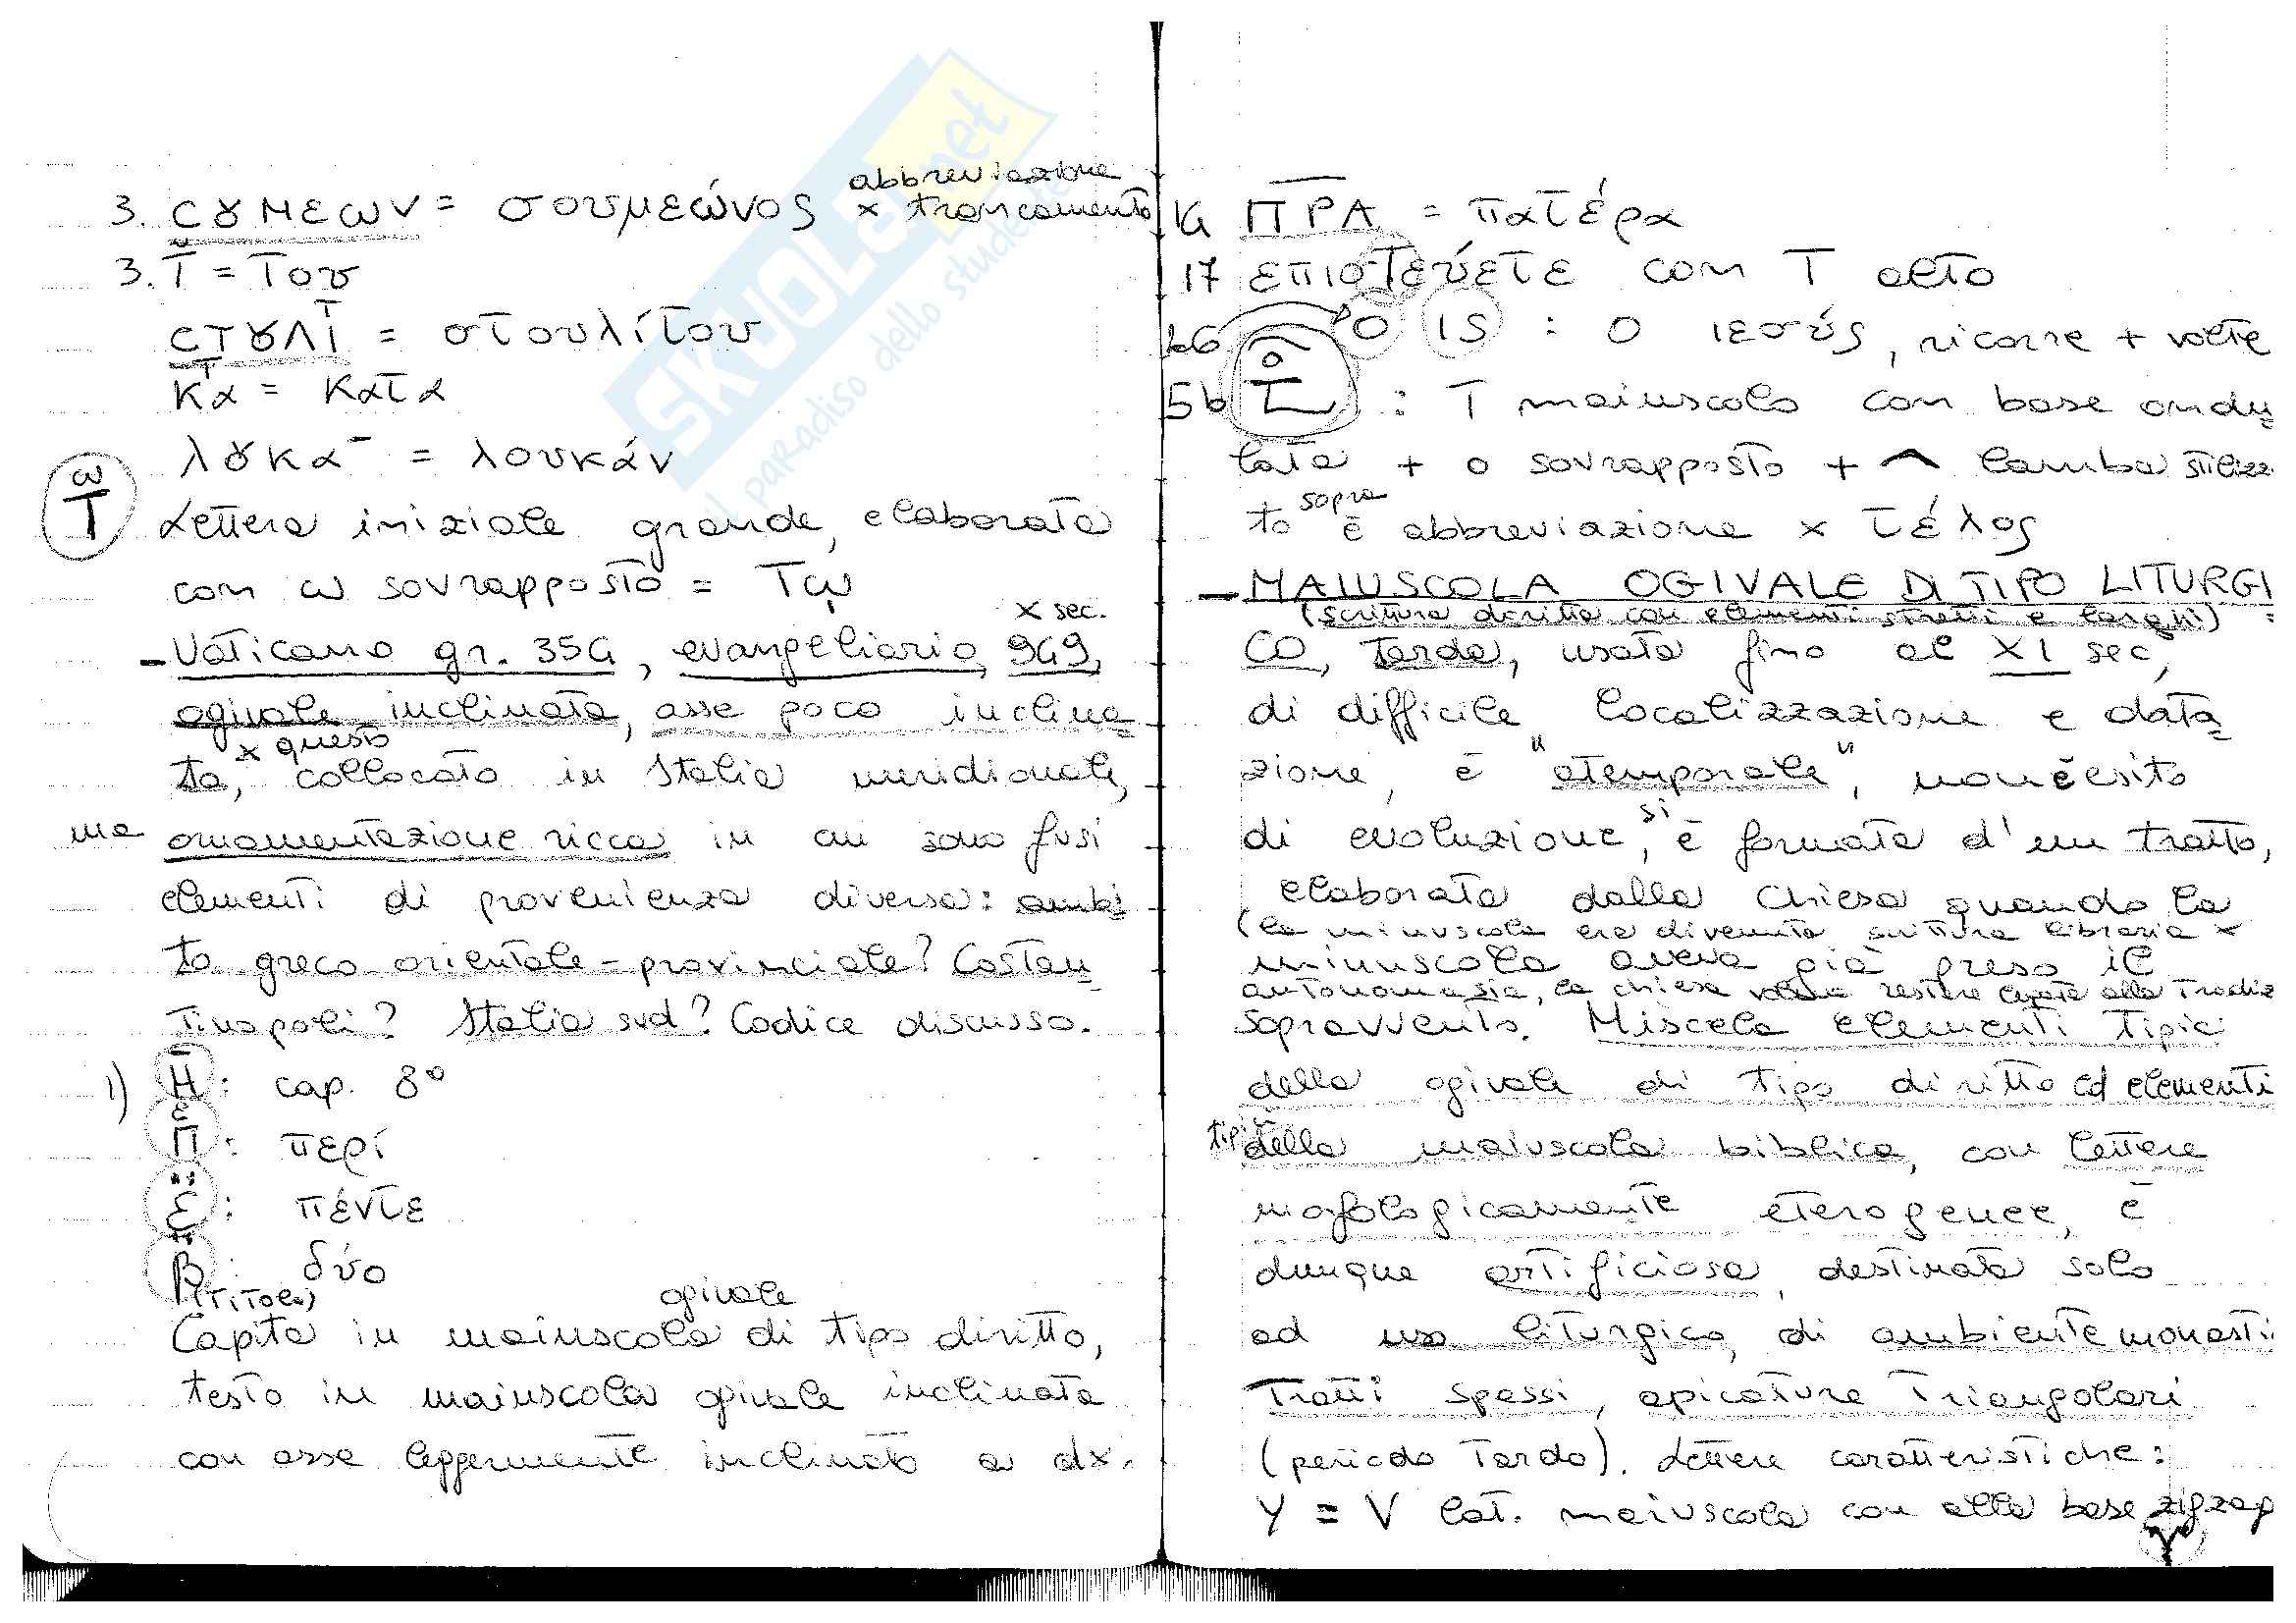 abbreviazione
3. CȣMEωN = σουμεώνος × troncamento
3. T̆ = Του
CTȣΛΙ^T = στουλίτου
Κ^Tα = Κατα
λȣκα¯ = λουκάν
ω
T Lettera iniziale grande, elaborata
con ω sovrapposto = Τῳ
X sec.
- Vaticano gr. 354, evangeliario, 949,
ogivale inclinata, asse poco inclina
× questo
ta, collocato in Italia meridionale,
ma ornamentazione ricca in cui sono fusi
elementi di provenienza diversa: ambi
to greco orientale-provinciale? Costan
tinopoli? Italia sud? Codice discusso.
1) H̄: cap. 8°
Π: περί
ε: πέντε
β: δύο
(titola) ogivale
Capita in maiuscola di tipo diritto,
testo in maiuscola ogivale inclinata
con asse leggermente inclinato a dx.
14 ΠΡΑ = πατέρα
17 επιστεύετε con T alto
66 O IS : ο ιεσούς, ricorre + volte
5b T : T maiuscolo con base ondu
lata + o sovrapposto + ^ lambda stilizza
sopra
to è abbreviazione × τέλος
- MAIUSCOLA OGIVALE DI TIPO LITURGI
(scrittura diritta con elementi stretti e larghi) :
CO, tarda, usata fino al XI sec,
di difficile localizzazione e data
zione, è "atemporale", non è esito
di evoluzione, si è formata d'un tratto,
elaborata dalla Chiesa quando la
(la minuscola era divenuta scrittura libraria ×
minuscola aveva già preso il
autonomasia, la chiesa voleva restare legata alla tradiz
sopravvento. Miscela elementi tipici
della ogivale di tipo diritto ed elementi
tipici
della maiuscola biblica, con lettere
morfologicamente eterogenee, è
dunque artificiosa, destinata solo
ad uso liturgico, di ambiente monasti
Tratti spessi, apicature triangolari
(periodo tardo). Lettere caratteristiche:
Y = V lat. maiuscola con alla base zigzag
SKUOLA.net
il paradiso dello studente